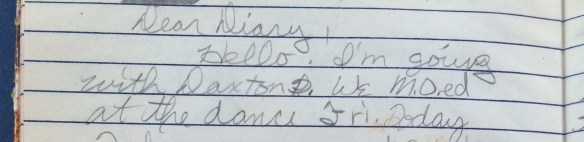 Dear Diary,
Hello. I'm going
with Daxton D. We M.O.ed
at the dance Fri. Today